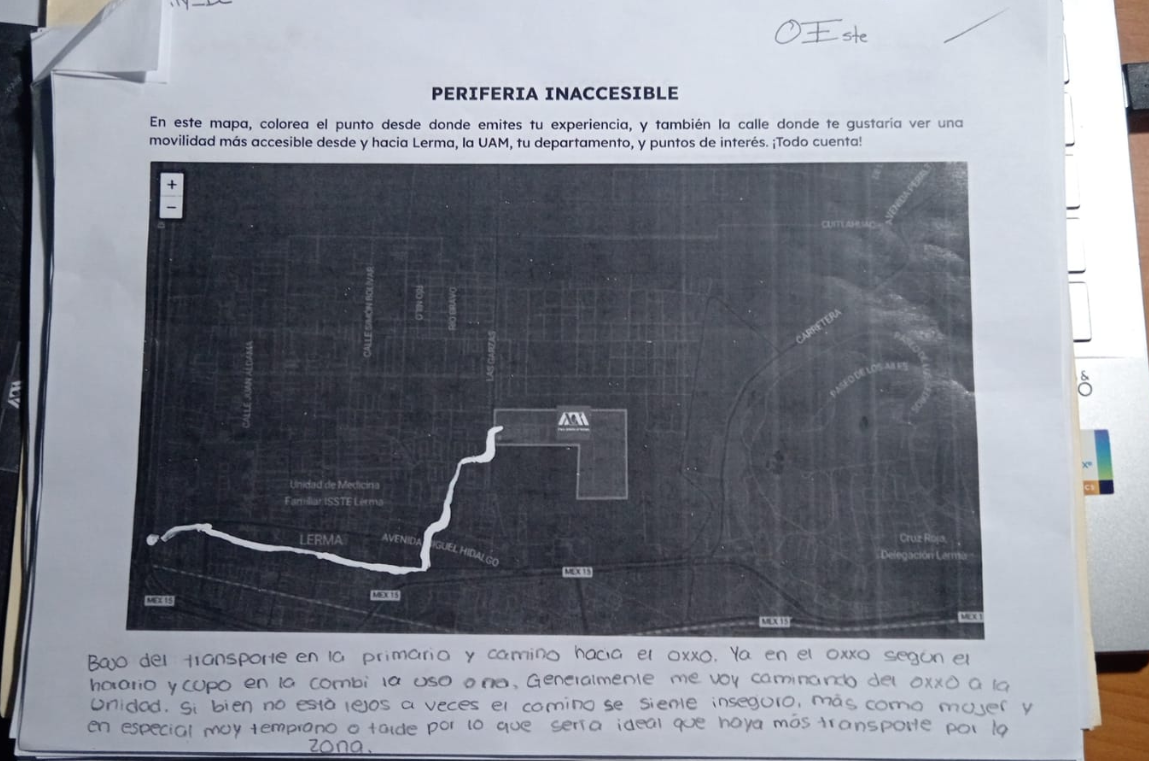 OESte
PERIFERIA INACCESIBLE
En este mapa, colorea el punto desde donde emites tu experiencia, y también la calle donde te gustaria ver una
movilidad más accesible desde y hacia Lerma, la UAM, tu departamento, y puntos de interés. ¡Todo cuenta!
+
−
CUITLAHUAC
CALLE SIMÓN BOLIVAR
RIO NILO
RIO BRAVO
LAS GARZAS
CALLE JUAN ALDAMA
CARRETERA
PASEO DE LOS
Unidad de Medicina
Familiar ISSTE Lerma
LERMA
AVENIDA MIGUEL HIDALGO
Cruz Roja,
Delegación Lerma
MEX 15
MEX 15
MEX 15
MEX 15
MEX 1
Bajo del transporte en la primaria y camino hacia el oxxo. Ya en el oxxo según el
horario y cupo en la combi la uso o no. Generalmente me voy caminando del oxxo a la
Unidad. Si bien no está lejos a veces el camino se siente inseguro, más como mujer y
en especial muy temprano o tarde por lo que sería ideal que haya más transporte por la
zona.